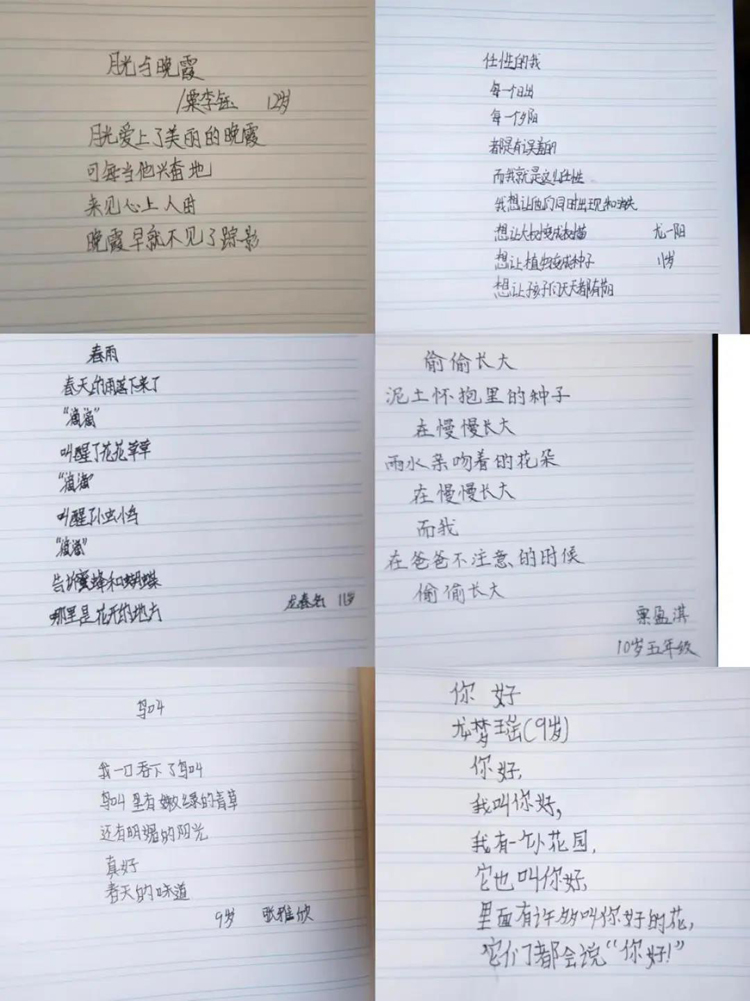 月光与晚霞
粟李钰 12岁
月光爱上了美丽的晚霞
可每当他兴奋地
来见心上人时
晚霞早就不见了踪影
任性的我
每一个日出
每一个夕阳
都是有误差的
而我就是这么任性
我想让他们同时出现和消失
想让大树变成树苗
想让植物变成种子
想让孩子们天天都有
龙一阳
11岁
春雨
春天的雨落下来了
叫醒了花花草草
叫醒了小虫小鸟
告诉蜜蜂和蝴蝶
哪里是花开的地方
11岁
偷偷长大
泥土怀抱里的种子
在慢慢长大
雨水亲吻着的花朵
在慢慢长大
而我
在爸爸不注意的时候
偷偷长大
粟盈淇
10岁五年级
鸟叫
我一口吞下了鸟叫
鸟叫里有嫩绿的青草
还有明媚的阳光
真好
春天的味道
9岁 张雅欣
你好
龙梦瑶(9岁)
你好,
我叫你好,
我有一个小花园,
它也叫你好,
里面有许多叫你好的花,
它们都会说“你好!”